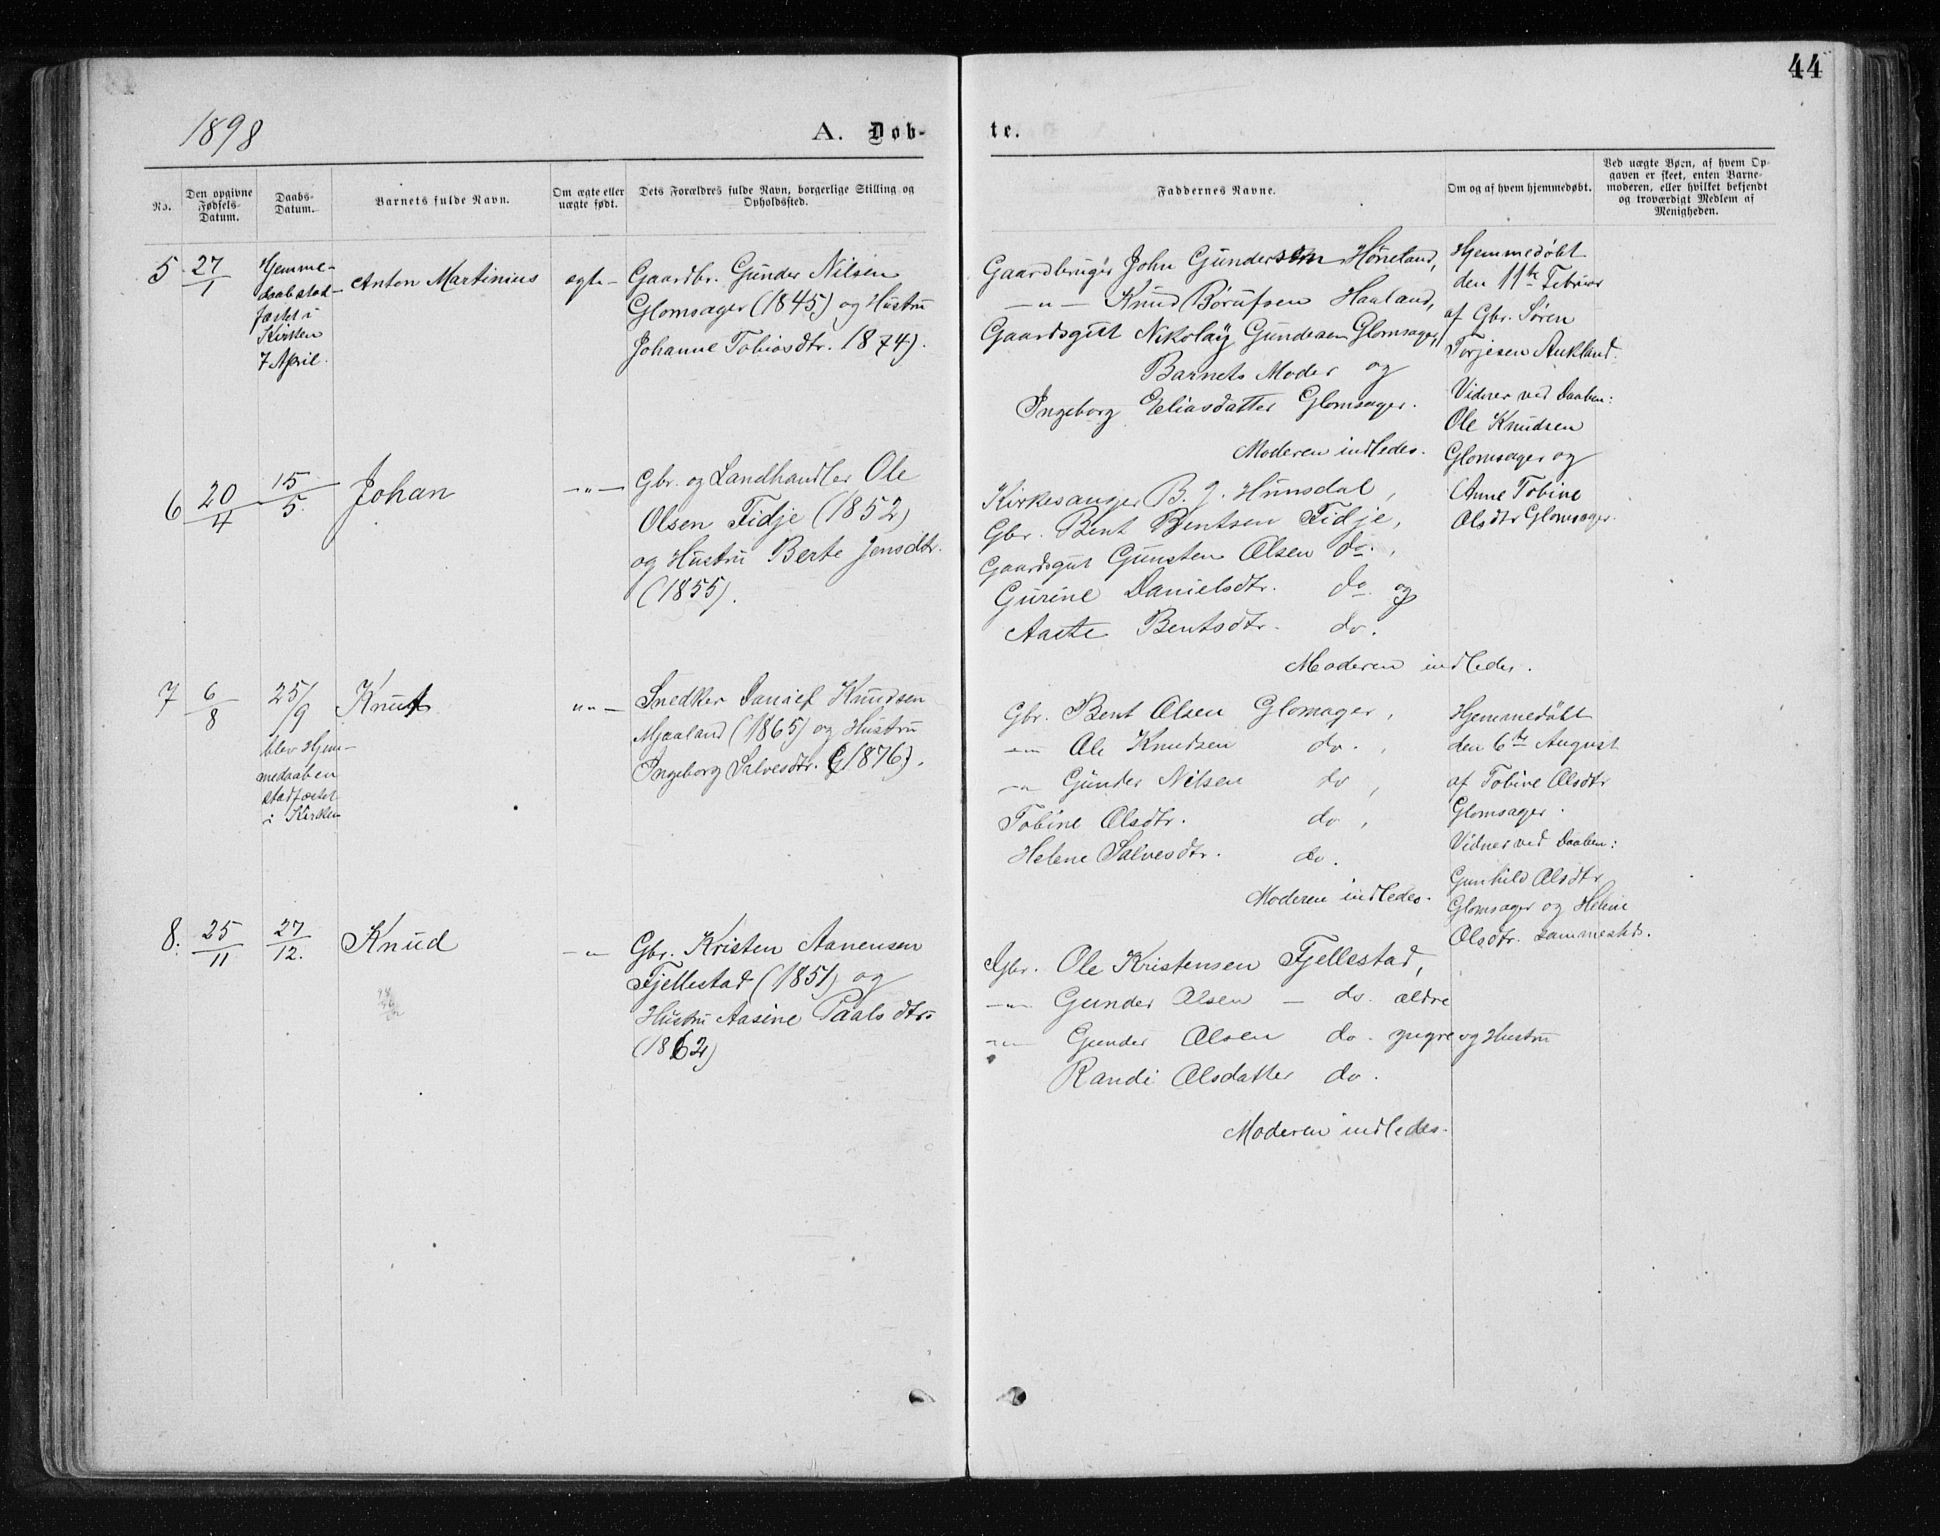 44
1898
A. Døb-
te.
No.
Den opgivne
Fødsels-
Datum.
Daabs-
Datum.
Barnets fulde Navn.
Om ægte eller
uægte født.
Dets Forældres fulde Navn, borgerlige Stilling og
Opholdssted.
Faddernes Navne.
Om og af hvem hjemmedøbt.
Ved uægte Børn, af hvem Op-
gaven er skeet, enten Barne-
moderen, eller hvilket bekjendt
og troværdigt Medlem af
Menigheden.
5
27/1
Hjemme-
daab stad-
fæstet i
Kirken
7 April.
Anton Martinius
egte
Gaardbr. Gunder Nilsen
Glomsager (1845) og Hustru
Johanne Tobiasdtr. 1874).
Gaardbruger John Gundersen Høneland,
—"— Knud Børufsen Haaland,
Gaardsgut Nikolay Gundersen Glomsager,
Barnets Moder og
Ingeborg Eliasdatter Glomsager.
Moderen indledes.
Hjemmedøbt
den 11te Februar
af Gbr. Søren
Torjesen Aukland.
Vidner ved Daaben:
Ole Knudsen
Glomsager og
Anne Tobine
Olsdtr Glomsager.
6
20/4
15/5.
Johan
—"—
Gbr. og Landhandler Ole
Olsen Fidje (1852)
og Hustru Berte Jensdtr.
(1855).
Kirkesanger B. J. Hunsdal,
Gbr. Bent Bentsen Fidje,
Gaardsgut Gunsten Olsen do.,
Gurine Danielsdtr. do og
Aaste Bentsdtr. do.
Moderen indledes.
7
6/8
25/9
blev Hjem-
medaaben
stadfæstet
i Kirken
Knut
"" —
Snedker Danief Knudsen
Mjaaland (1865) og Hustru
Ingeborg Salvesdtr. (1876).
Gbr. Bent Olsen Glomsager,
—"— Ole Knudsen do.,
—"— Gunder Nilsen do,
Tobine Olsdtr. do,
Helene Salvesdtr. do.
Moderen indledes.
Hjemmedøbt
den 6te August
af Tobine Olsdtr
Glomsager.
Vidner ved Daaben:
Gunhild Olsdtr
Glomsager og Helene
Olsdtr. sammesteds.
8.
25/11
27/12.
Knud
—"
Gbr. Kristen Aanensen
Fjellestad (1851) og
Hustru Aasine Paalsdtr.
(1862)
Gbr. Ole Kristensen Fjellestad,
—"— Gunder Olsen — do. ældre
—"— Gunder Olsen do. yngre og Hustru
Randi Olsdatter do.
Moderen indledes.